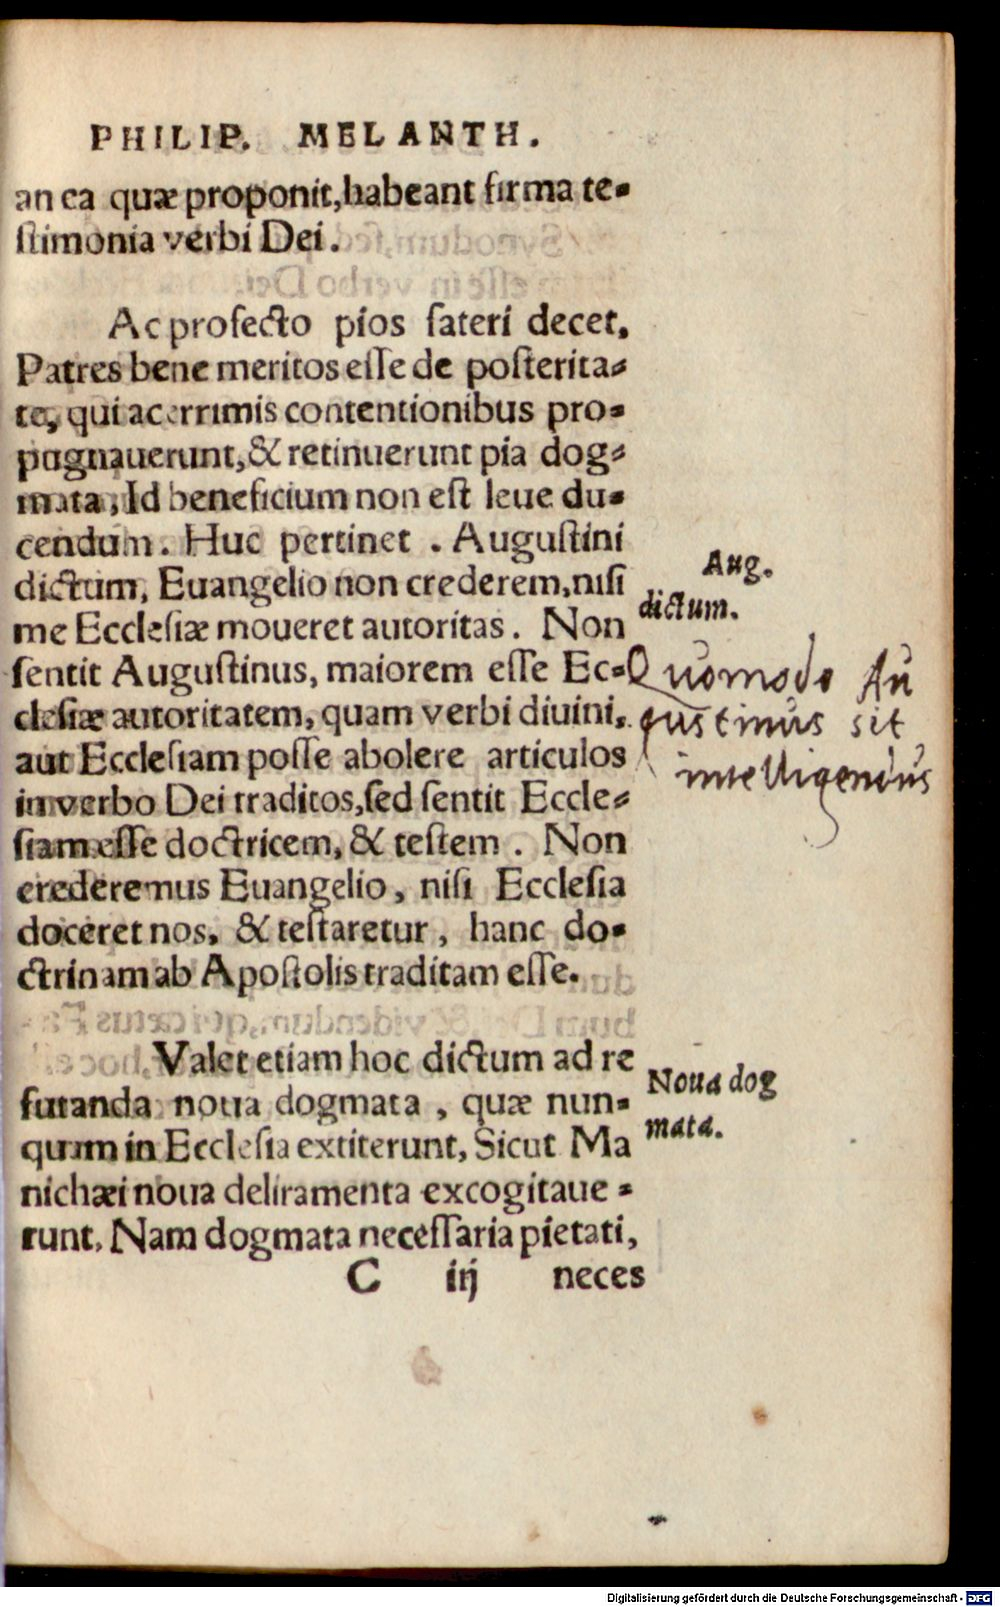 PHILIP. MELANTH.
an ea quæ proponit, habeant firma te-
ſtimonia verbi Dei.
Ac profecto pios fateri decet,
Patres bene meritos eſſe de poſterita-
te, qui acerrimis contentionibus pro-
pugnauerunt, & retinuerunt pia dog-
mata, Id beneficium non eſt leue du-
cendum. Huc pertinet . Auguſtini
dictum, Euangelio non crederem, niſi
Aug.
dictum.
me Eccleſiæ moueret autoritas. Non
ſentit Auguſtinus, maiorem eſſe Ec-
cleſiæ autoritatem, quam verbi diuini,
aut Eccleſiam poſſe abolere articulos
in verbo Dei traditos, ſed ſentit Eccle-
ſiam eſſe doctricem, & teſtem . Non
Quomodo Au
gustinus sit
intelligendus
crederemus Euangelio, niſi Eccleſia
doceret nos, & teſtaretur, hanc do-
ctrinam ab Apoſtolis traditam eſſe.
Valet etiam hoc dictum ad re
futanda noua dogmata, quæ nun-
quam in Eccleſia extiterunt, Sicut Ma
Noua dog
mata.
nichæi noua deliramenta excogitaue-
runt, Nam dogmata neceſſaria pietati,
C iij neces
Digitalisierung gefördert durch die Deutsche Forschungsgemeinschaft - DFG